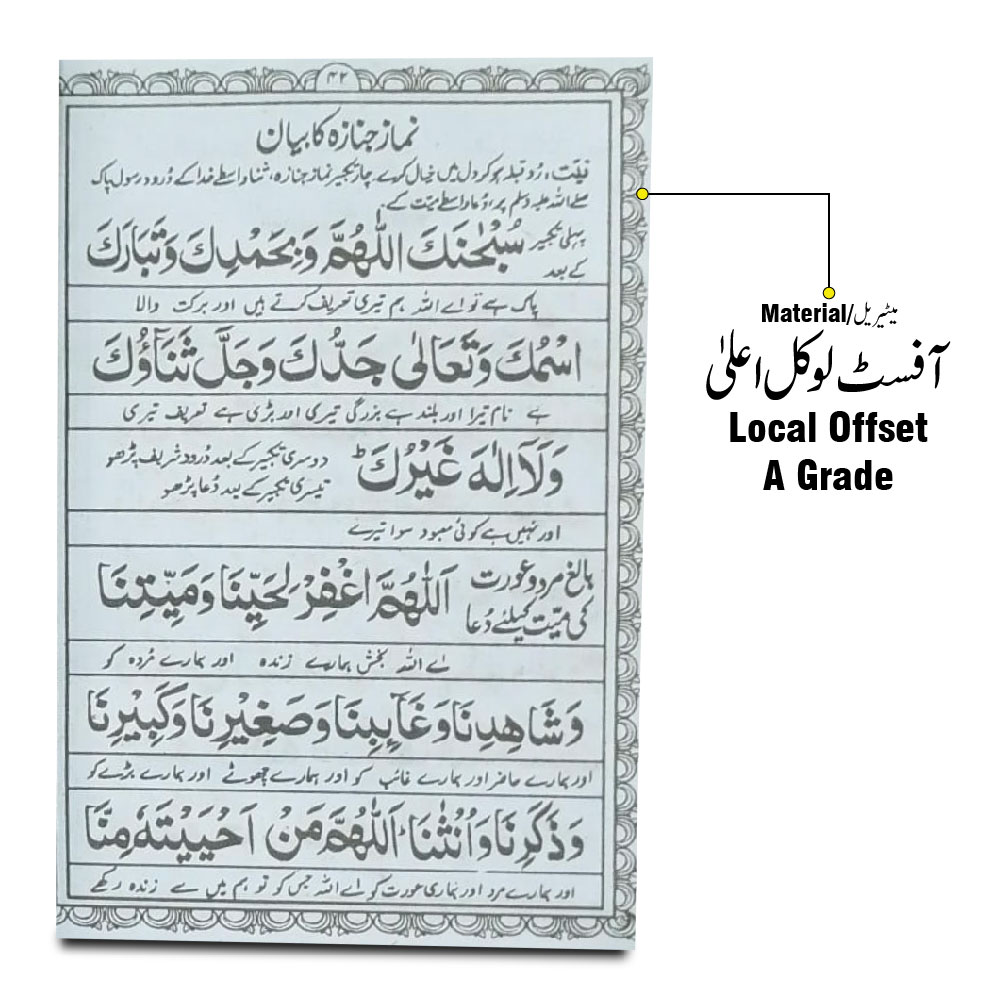 ۴۲
نماز جنازہ کا بیان
نیّت، رُو قبلہ ہو کر دل میں خیال کرے چار تکبیر نماز جنازہ، ثنا واسطے خدا کے دُرود رسول پاک
صلے اللہ علیہ وسلم پر، دُعا واسطے میّت کے۔
پہلی تکبیر کے بعد سُبْحٰنَكَ اللّٰهُمَّ وَبِحَمْدِكَ وَتَبَارَكَ
پاک ہے تو اے اللہ ہم تیری تعریف کرتے ہیں اور برکت والا
اسْمُكَ وَتَعَالٰى جَدُّكَ وَجَلَّ ثَنَآؤُكَ
ہے نام تیرا اور بلند ہے بزرگی تیری اور بڑی ہے تعریف تیری
وَلَآ اِلٰهَ غَيْرُكَ ط دوسری تکبیر کے بعد دُرود شریف پڑھو
تیسری تکبیر کے بعد دُعا پڑھو
اور نہیں ہے کوئی معبود سوا تیرے
بالغ مرد و عورت کی میّت کیلئے دُعا اَللّٰهُمَّ اغْفِرْ لِحَيِّنَا وَمَيِّتِنَا
اے اللہ بخش ہمارے زندہ اور ہمارے مُردہ کو
وَشَاهِدِنَا وَغَآئِبِنَا وَصَغِيْرِنَا وَكَبِيْرِنَا
اور ہمارے حاضر اور ہمارے غائب کو اور ہمارے چھوٹے اور ہمارے بڑے کو
وَذَكَرِنَا وَاُنْثٰنَا ؕ اَللّٰهُمَّ مَنْ اَحْيَيْتَهٗ مِنَّا
اور ہمارے مرد اور ہماری عورت کو اے اللہ جس کو تو ہم میں سے زندہ رکھے
Material/میٹیریل
آفسٹ لوکل اعلیٰ
Local Offset
A Grade